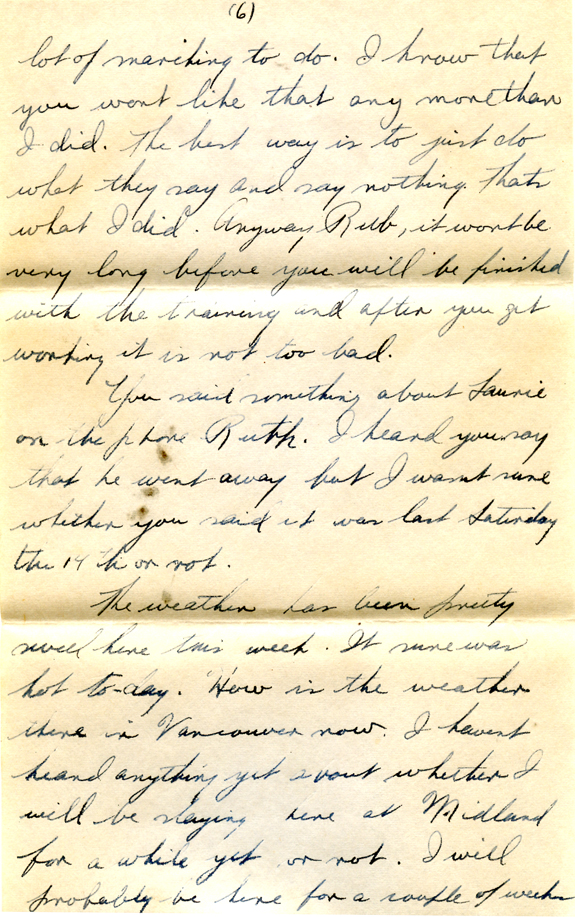 (6)
lot of marching to do. I know that
you wont like that any more than
I did. The best way is to just do
what they say and say nothing. Thats
what I did. Anyway, Rub, it wont be
very long before you will be finished
with the training and after you get
working it is not too bad.
You said something about Laurie
on the phone Ruth. I heard you say
that he went away but I wasnt sure
whether you said it was last Saturday
the 14 th or not.
The weather has been pretty
swell here this week. It sure was
hot to-day. How is the weather
there in Vancouver now. I havent
heard anything yet about whether I
will be staying here at Midland
for a while yet or not. I will
probably be here for a couple of weeks